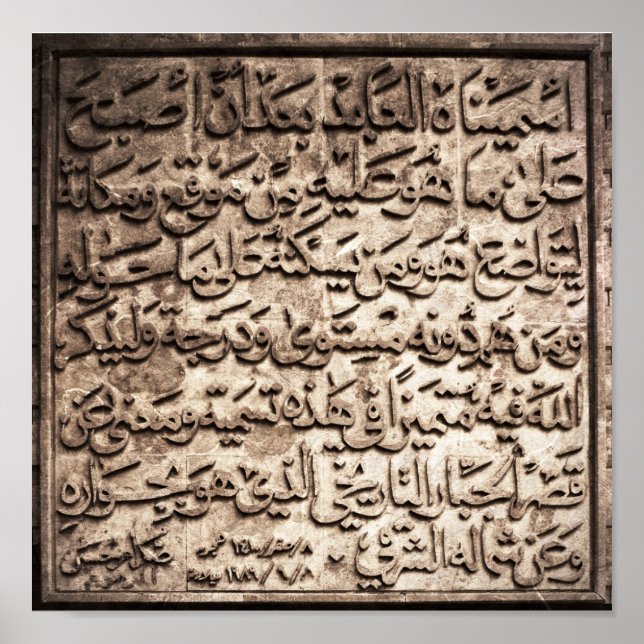 أسميناه العابد بعد أن أصبح
على ما هو عليه من موقع ومكانة
ليتواضع هو ومن يسكنه على ما حوله
ومن هو دونه مستوى ودرجة وليذكر
الله فيه متميزاً في هذه تسمية ومعنى عن
قصر أحبار التاريخي الذي هو بجواره
وعن شماله الشرقي .
٨/صفر/١٤١٠ هجرية
١٩٨٩/٩/٨ ميلادية
صدام حسين